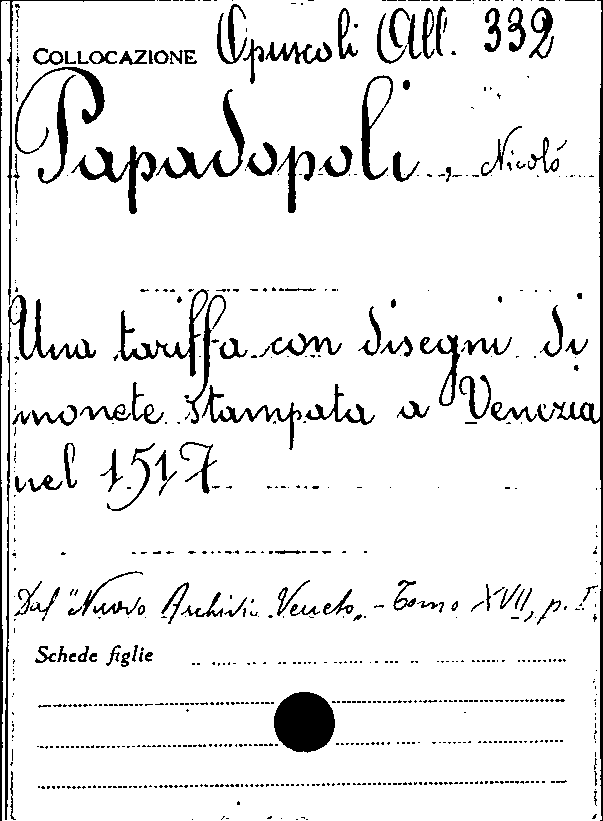 COLLOCAZIONE Opuscoli All. 332
Papadopoli, Nicolò
Una tariffa con disegni di
monete stampata a Venezia
nel 1517
Dal "Nuovo Archivio Veneto" - Tomo XVII, p. I
Schede figlie